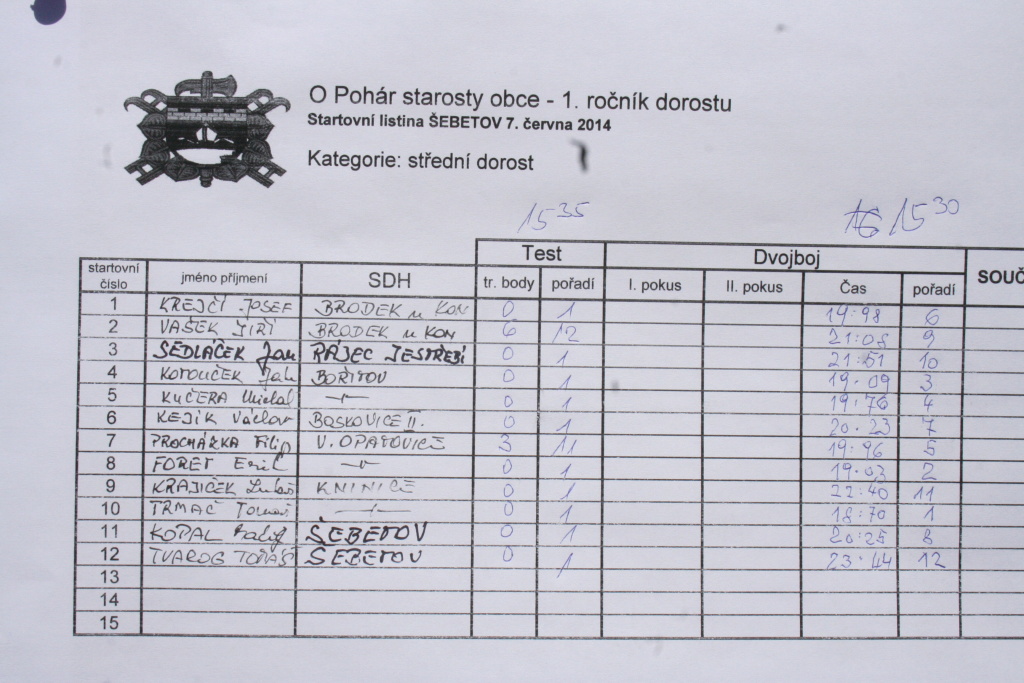 O Pohár starosty obce - 1. ročník dorostu
Startovní listina ŠEBETOV 7. června 2014
Kategorie: střední dorost
15 35 15 30
Test Dvojboj
startovní číslo jméno příjmení SDH tr. body pořadí I. pokus II. pokus Čas pořadí SOUČ
1 KREJČÍ JOSEF BRODEK u KON 0 1 19:98 6
2 VAŠEK JIŘÍ BRODEK u KON 6 12 21:08 9
3 SEDLÁČEK Jan RÁJEC JESTŘEBÍ 0 1 21:51 10
4 KOTOUČEK Jan BOŘITOV 0 1 19:09 3
5 KUČERA Michal 0 1 19:76 4
6 KEJÍK Václav BOSKOVICE II. 0 1 20:23 7
7 PROCHÁZKA Filip V. OPATOVICE 3 11 19:96 5
8 FORET Erik 0 1 19:03 2
9 KRAJÍČEK Lukáš KNINICE 0 1 22:40 11
10 TRMAČ Tomáš 0 1 18:70 1
11 KOPAL ŠEBETOV 0 1 20:25 8
12 TVAROG TOMÁŠ ŠEBETOV 0 1 23:44 12
13
14
15